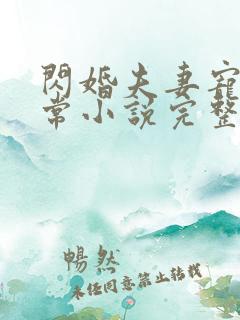 閃婚夫妻寵
常小說完整
暢然
未任同意禁止轉載